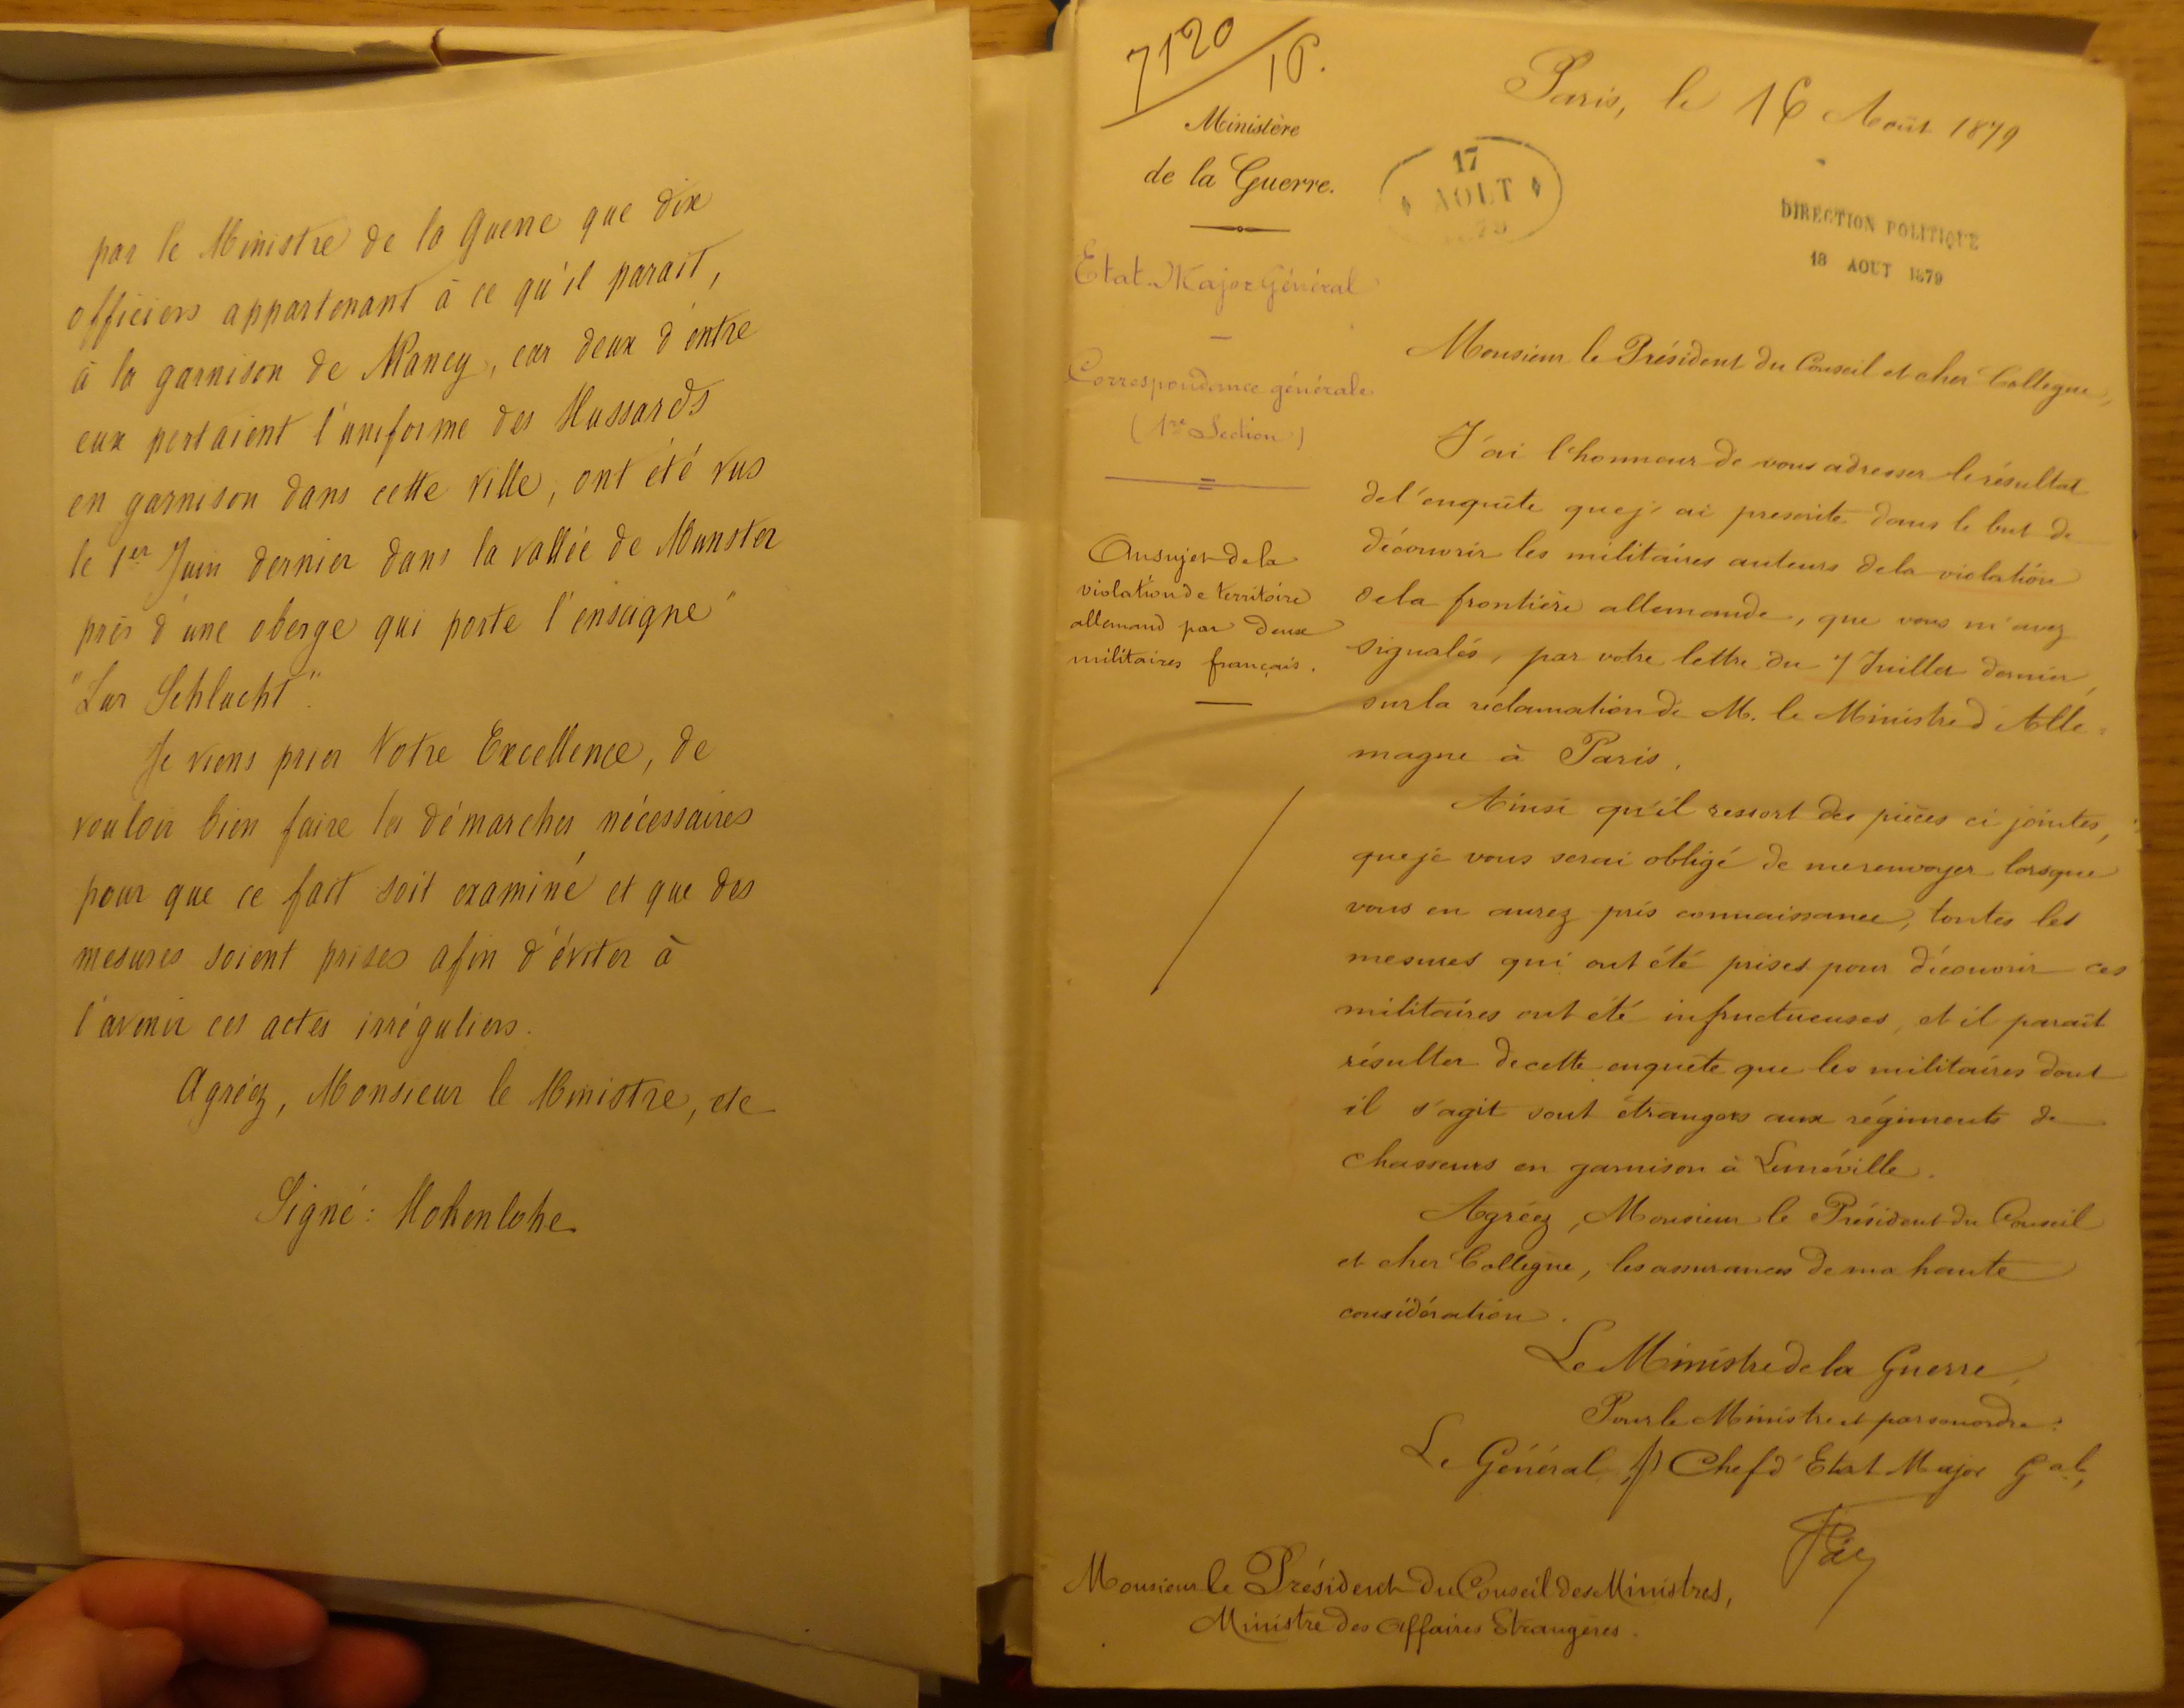 par le Ministre de la Guerre que dix
officiers appartenant à ce qu'il parait,
à la garnison de Nancy, car deux d'entre
eux portaient l'uniforme des Hussards
en garnison dans cette ville, ont été vus
le 1er Juin dernier dans la vallée de Munster
près d'une oberge qui porte l'enseigne"
"Zur Schlucht".
Je viens prier Votre Excellence, de
vouloir bien faire les démarches nécessaires
pour que ce fait soit examiné et que des
mesures soient prises afin d'éviter à
l'avenir ces actes irréguliers.
Agréez, Monsieur le Ministre, etc
Signé: Hohenlohe
7120/16.
Ministère
de la Guerre.
Etat-Major Général
Correspondance générale
(1re Section)
Au sujet de la
violation de territoire
allemand par deux
militaires français.
Paris, le 16 Août 1879
17
AOUT
79
DIRECTION POLITIQUE
18 AOUT 1879
Monsieur le Président du Conseil et cher Collègue,
J'ai l'honneur de vous adresser le résultat
de l'enquête que j'ai prescrite dans le but de
découvrir les militaires auteurs de la violation
de la frontière allemande, que vous m'avez
signalés, par votre lettre du 7 Juillet dernier,
sur la réclamation de M. le Ministre d'Alle=
magne à Paris.
Ainsi qu'il ressort des pièces ci jointes,
que je vous serai obligé de me renvoyer lorsque
vous en aurez pris connaissance, toutes les
mesures qui ont été prises pour découvrir ces
militaires ont été infructueuses, et il parait
résulter de cette enquête que les militaires dont
il s'agit sont étrangers aux régiments de
chasseurs en garnison à Lunéville.
Agréez, Monsieur le Président du Conseil
et cher Collègue, les assurances de ma haute
considération.
Le Ministre de la Guerre,
Pour le Ministre et par son ordre:
Le Général, Chef d'Etat Major Gal,
Monsieur le Président du Conseil des Ministres,
Ministre des Affaires Etrangères.